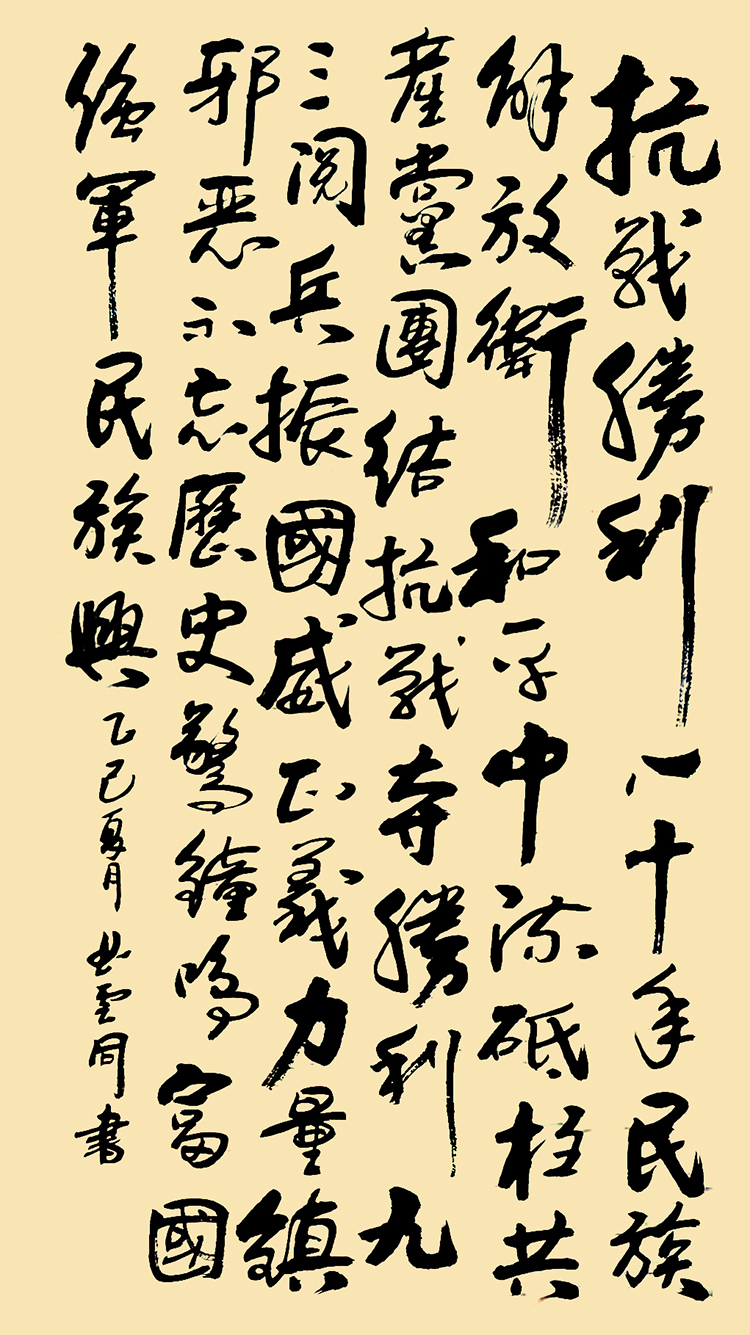 抗戰勝利八十年民族
解放衛和平中流砥柱共
產黨團結抗戰奪勝利九
三閱兵振國威正義力量鎮
邪惡不忘歷史驚鐘鳴富國
強軍民族興
乙巳夏月 雲同書